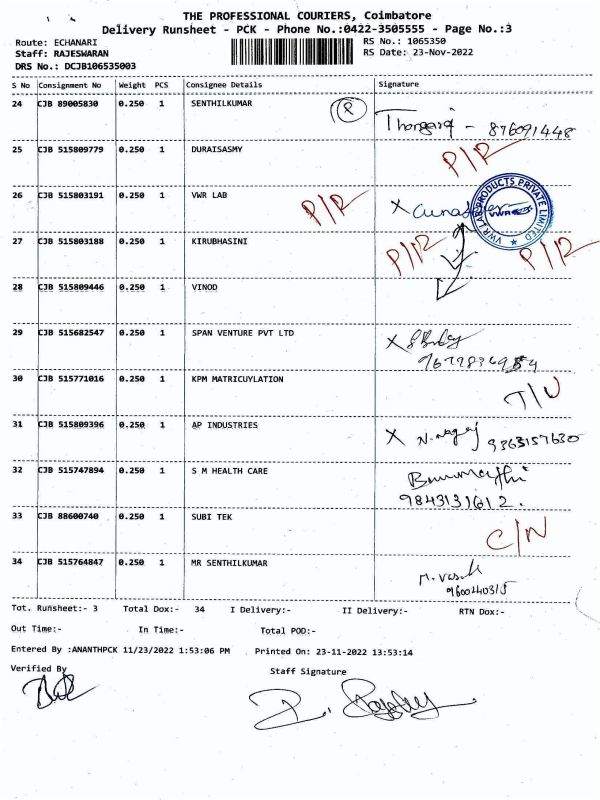 THE PROFESSIONAL COURIERS, Coimbatore
Delivery Runsheet - PCK - Phone No.:0422-3505555 - Page No.:3
Route: ECHANARI RS No.: 1065350
Staff: RAJESWARAN RS Date: 23-Nov-2022
DRS No.: DCJB106535003
S No Consignment No Weight PCS Consignee Details Signature
24 CJB 89005830 0.250 1 SENTHILKUMAR R
- 876091448
25 CJB 515809779 0.250 1 DURAISASMY P/R
26 CJB 515803191 0.250 1 VWR LAB P/R X
VWR LAB PRODUCTS PRIVATE LIMITED
27 CJB 515803188 0.250 1 KIRUBHASINI P/R P/R
28 CJB 515809446 0.250 1 VINOD
29 CJB 515682547 0.250 1 SPAN VENTURE PVT LTD X
30 CJB 515771016 0.250 1 KPM MATRICUYLATION
31 CJB 515809396 0.250 1 AP INDUSTRIES X 9363157630
32 CJB 515747894 0.250 1 S M HEALTH CARE
9843131612.
33 CJB 88600740 0.250 1 SUBI TEK C/N
34 CJB 515764847 0.250 1 MR SENTHILKUMAR
Tot. Runsheet:- 3 Total Dox:- 34 I Delivery:- II Delivery:- RTN Dox:-
Out Time:- In Time:- Total POD:-
Entered By :ANANTHPCK 11/23/2022 1:53:06 PM Printed On: 23-11-2022 13:53:14
Verified By Staff Signature